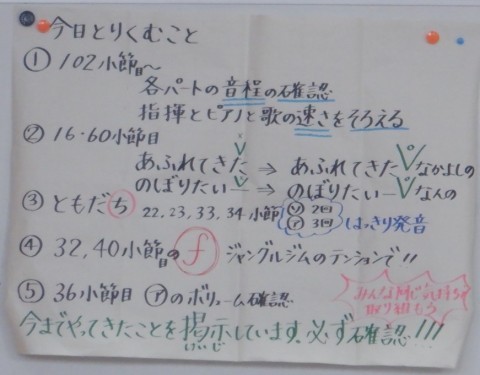 今日とりくむこと
① 102小節目〜
各パートの音程の確認
指揮とピアノと歌の速さをそろえる
② 16・60小節目
あふれてきた ⇒ あふれてきたVなかよしの
のぼりたい— ⇒ のぼりたい—Vなんの
③ ともだち 22,23,33,34小節 ソ 2回
ア 3回 はっきり発音
④ 32,40小節目の f ジャングルジムのテンションで!!
⑤ 36小節目 アのボリューム確認
みんな同じ気持ち
で取り組もう
今までやってきたことを掲示しています。必ず確認!!!
けいじ